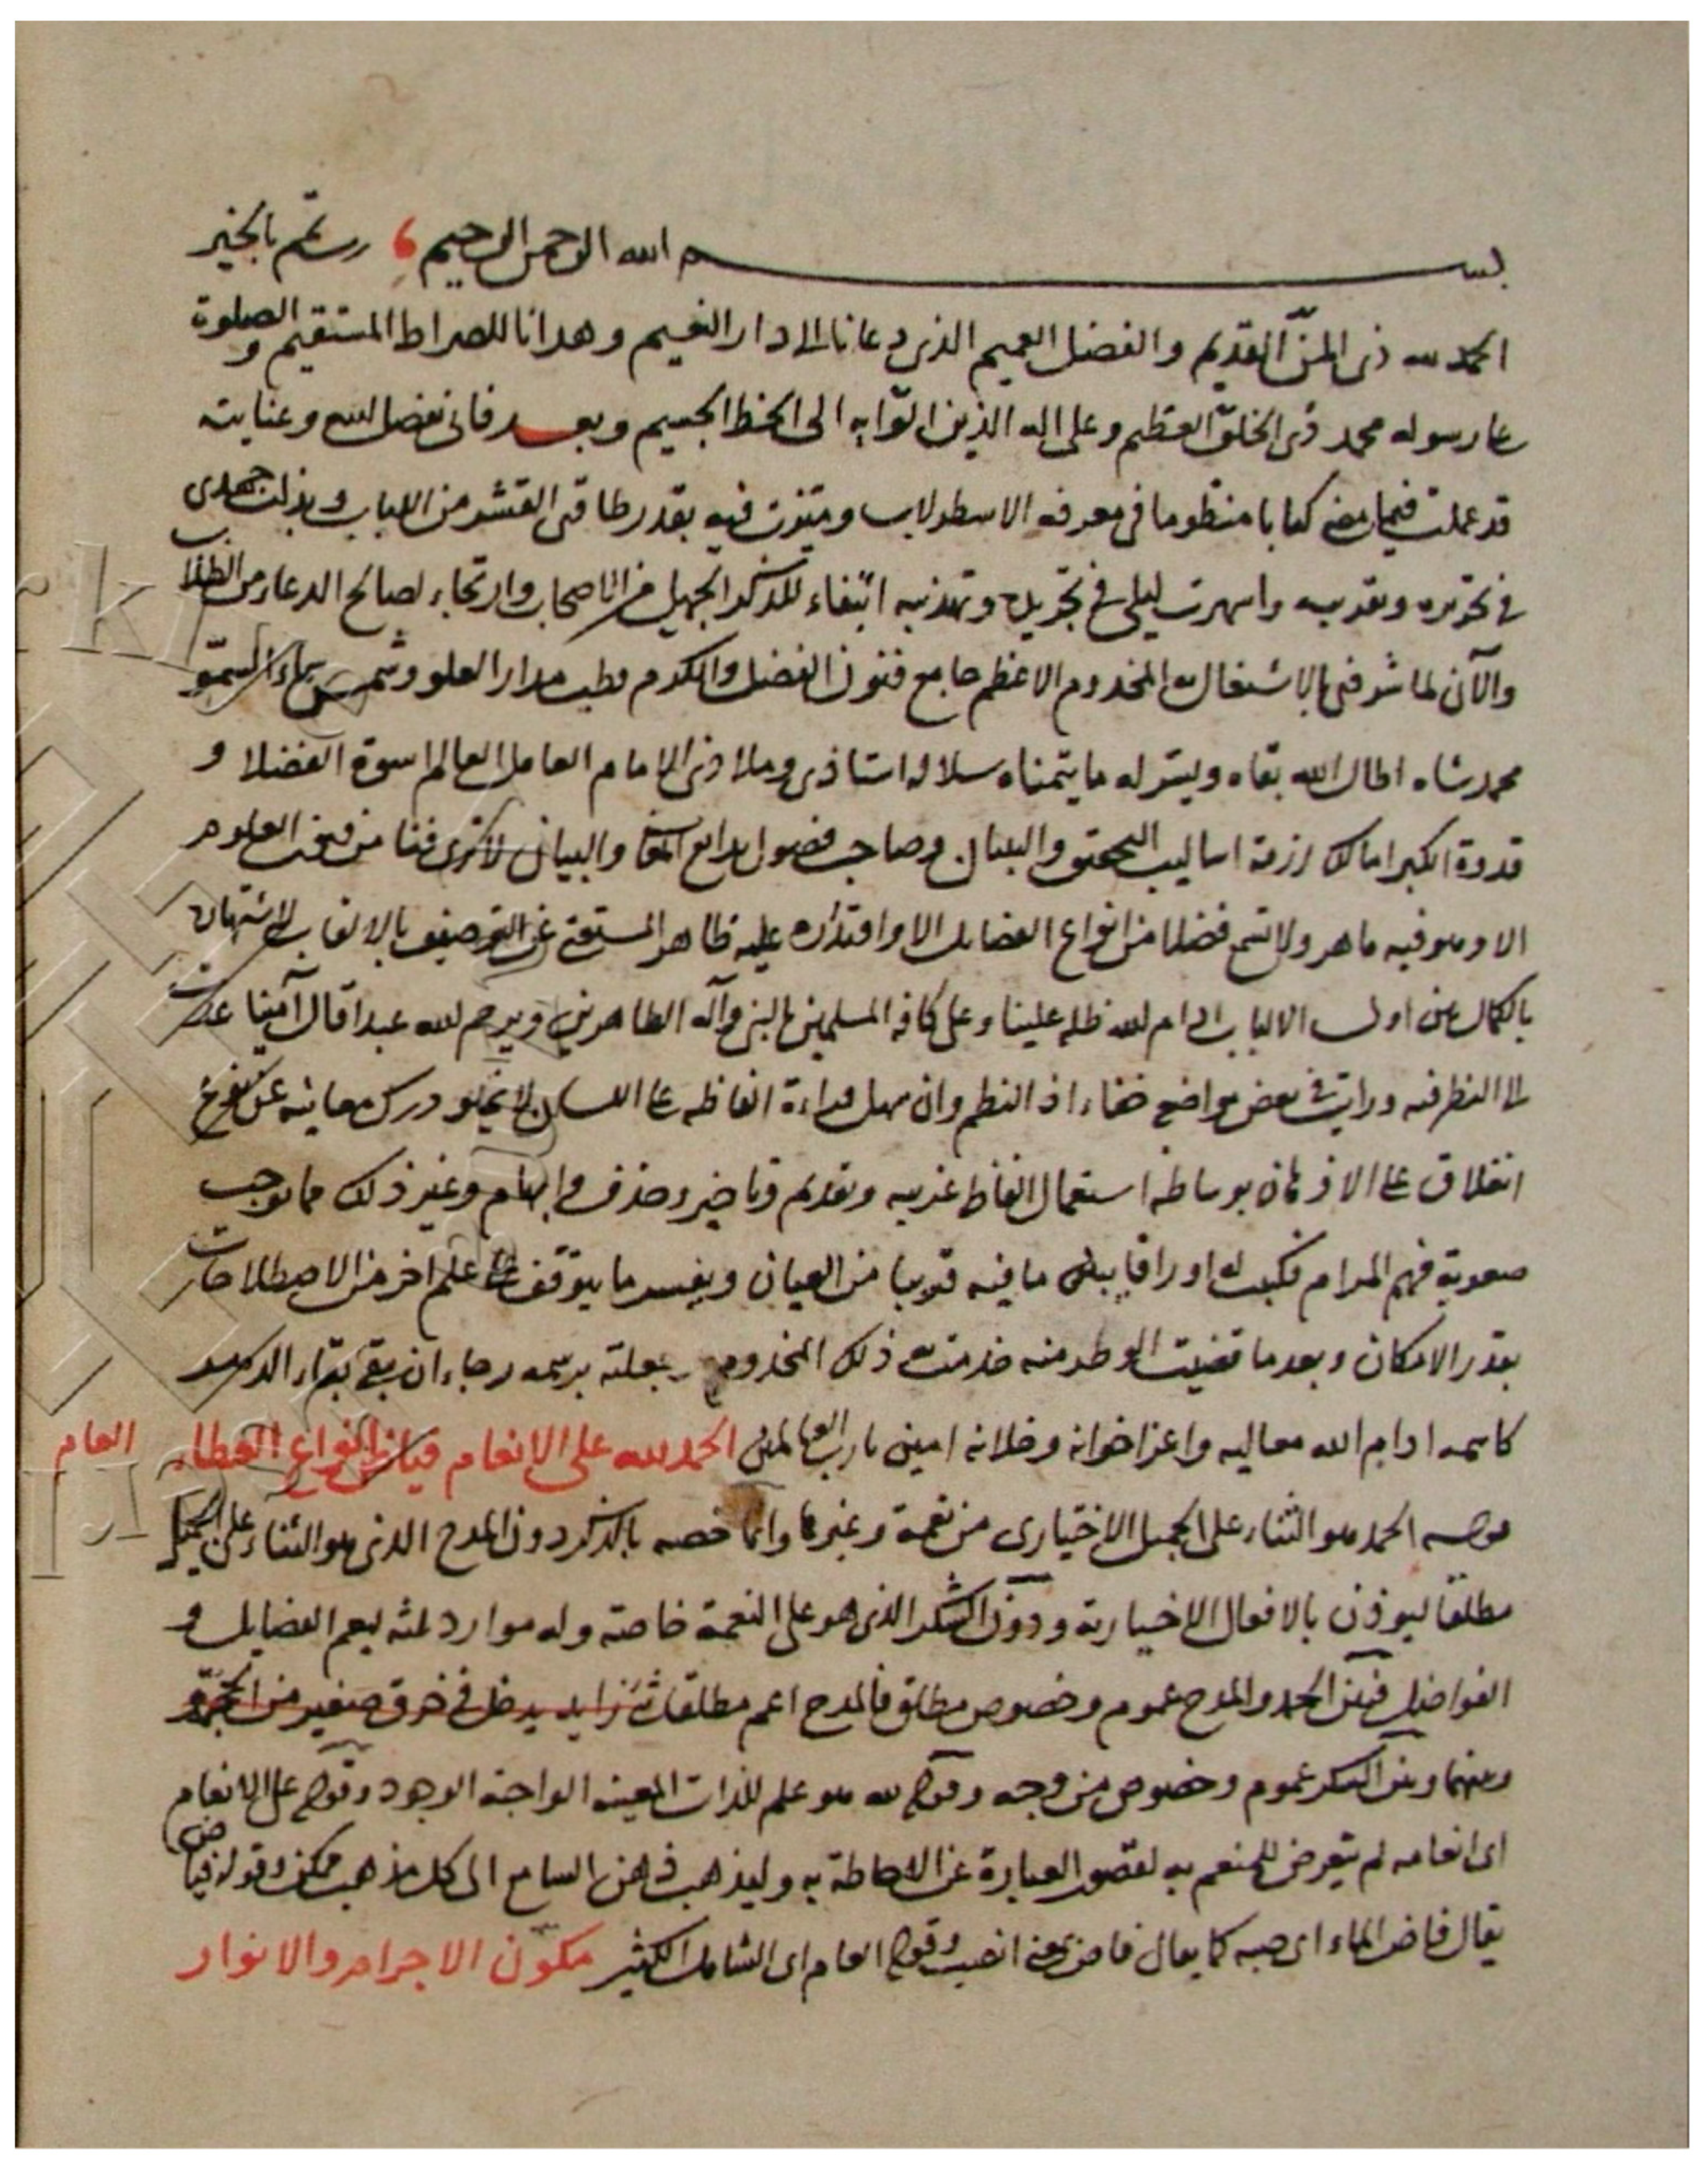 بسم الله الرحمن الرحيم رب تمم بالخير
الحمد لله ذى المنّ القديم والفضل العميم الذى دعانا الى دار النعيم وهدانا للصراط المستقيم والصلوة
على رسوله محمد ذى الخلق العظيم وعلى اله الذين اتوا به الى الحظ الجسيم وبعد فانى بفضل الله وعنايته
قد عملت فيما مضى كتابا منظوما فى معرفة الاسطرلاب وميّزت فيه بقدر طاقتى القشر من اللباب وبذلت جهدى
فى تحريره وتقريبه واسهرت ليلى فى تجريده وتهذيبه ابتغاء للذكر الجميل من الاصحاب وارتجاء لصالح الدعاء من الطلاب
والآن لما شرفنى بالاشتغال به المخدوم الاعظم جامع فنون الفضل والكرم قطب مدار العلو وشمس سماء السموّ
محمد شاه اطال الله بقاه ويسّر له ما يتمناه سلالة استاذى وملاذى الامام العامل العالم اسوة الفضلا و
قدوة الكبرا مالك ازمة اساليب التحقيق والبيان وصاحب فصول بدايع المعانى والبيان لا ترى فنا من فنون العلوم
الا وهو فيه ماهر ولا تسمع فضلا من انواع الفضايل الا واقتداره عليه ظاهر المستغنى عن التوصيف بالالقاب لاشتهاره
بالكمال عن اولى الالباب ادام الله ظله علينا وعلى كافة المسلمين بالنبى وآله الطاهرين ويرحم الله عبدا قال آمينا عدت
الى النظر فيه ورايت فى بعض مواضع خفاء اذ النظم وان سهل قراءة الفاظه على اللسان لا يخلو درك معانيه عن نوع
انغلاق على الاذهان بوساطة استعمال الفاظ غريبه وتقديم وتاخير وحذف وابهام وغير ذلك مما يوجب
صعوبة فهم المرام فكتبت له اوراقا يبين ما فيه قريبا من العيان ويفسر ما يتوقف على علم اخر من الاصطلاحات
بقدر الامكان وبعد ما قضيت الوطر منه خدمت به ذلك المخدوم وجعلته برسمه رجاء ان يبقى بقاء الدهر
كاسمه ادام الله معاليه واعز اخوانه وخلانه امين يا رب العالمين الحمد لله على الانعام فياض انواع العطاء العام
قوله الحمد هو الثناء على الجميل الاختيارى من نعمة وغيرها وانما خصه بالذكر دون المدح الذى هو الثناء على الجميل
مطلقا ليوذن بالافعال الاختيارية ودون الشكر الذى هو على النعمة خاصة وله موارد ثلثه ليعم الفضايل و
الفواضل فبين الحمد والمدح عموم وخصوص مطلق فالمدح اعم مطلقا زايد يدخل فى خرق صغير من
وبينهما وبين الشكر عموم وخصوص من وجه وقوله لله هو علم للذات المعينه الواجبة الوجود وقوله على الانعام
اى انعامه لم يتعرض للمنعم به لقصور العبارة عن الاحاطة به وليذهب ذهن السامع الى كل مذهب ممكن وقوله فياض
يقال فاض الماء اى صبه كما يقال فاض بمعنى انصب وقوله العام اى الشامل الكثير مكوّن الاجرام والانوار